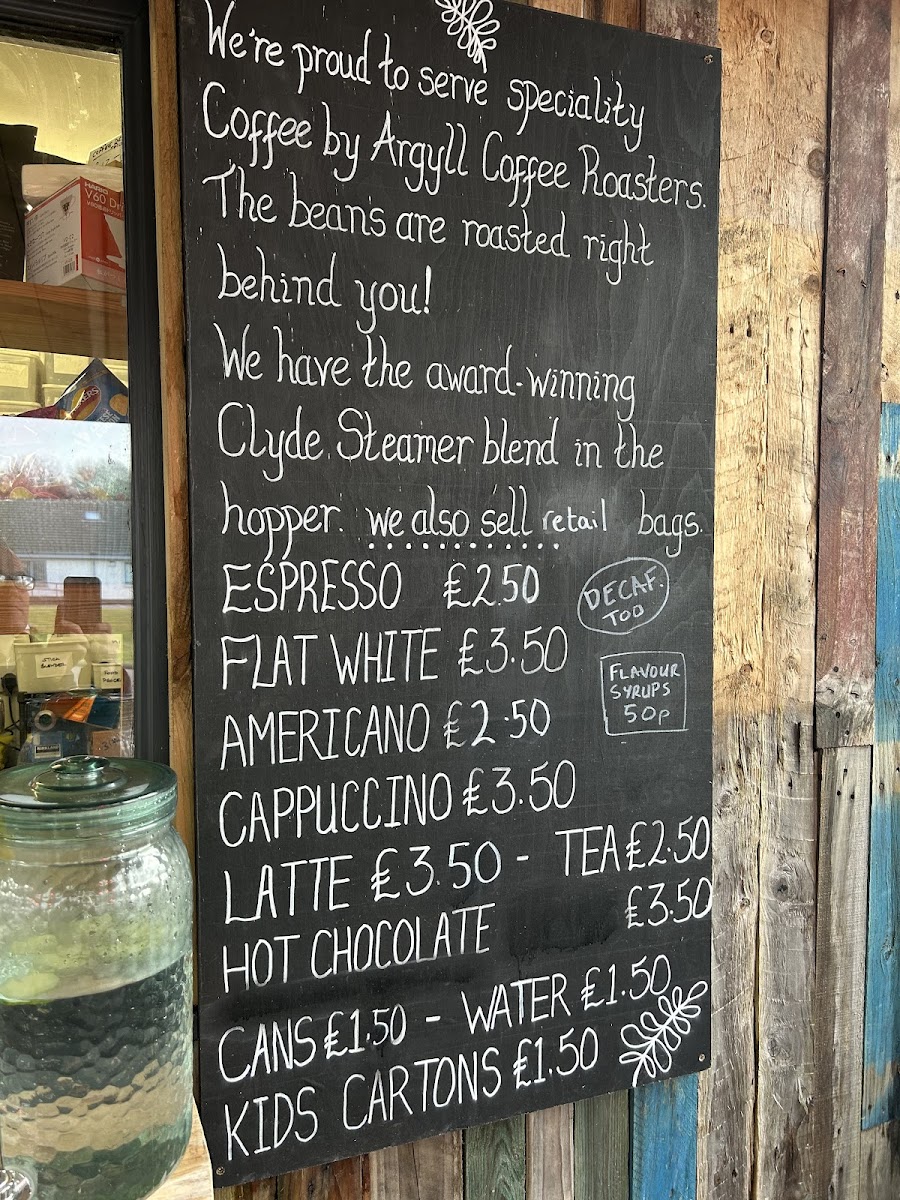 We're proud to serve speciality
Coffee by Argyll Coffee Roasters.
The beans are roasted right
behind you!
We have the award-winning
Clyde Steamer blend in the
hopper. we also sell retail bags.
ESPRESSO £2.50
DECAF.
TOO
FLAT WHITE £3.50
FLAVOUR
SYRUPS
50p
AMERICANO £2.50
CAPPUCCINO £3.50
LATTE £3.50 - TEA £2.50
HOT CHOCOLATE £3.50
CANS £1.50 - WATER £1.50
KIDS CARTONS £1.50
HARIO
V60